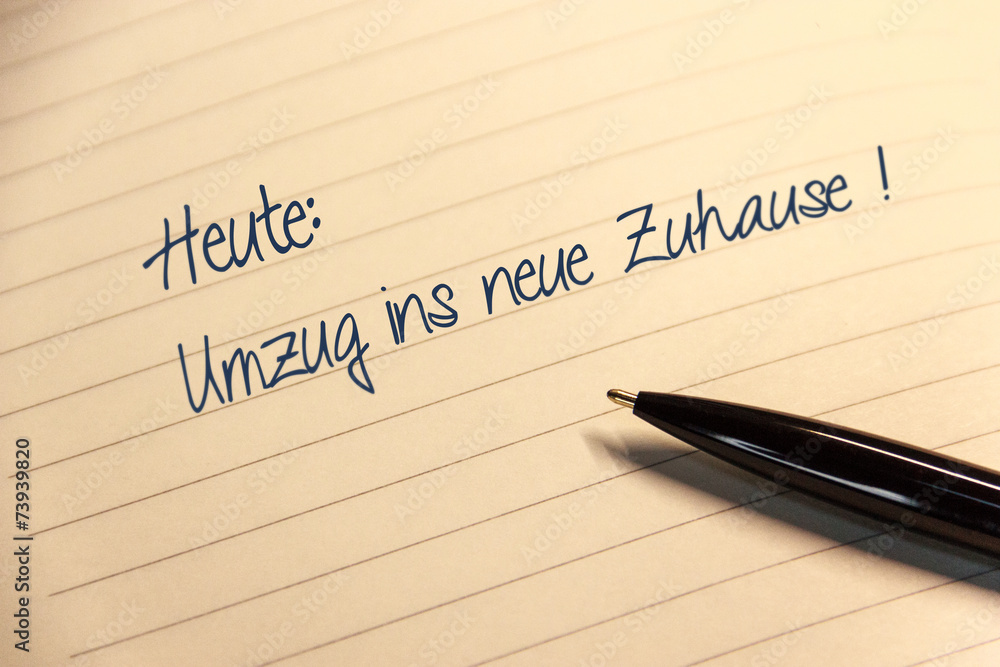 Heute:
Umzug ins neue Zuhause !
Adobe Stock | #73939820